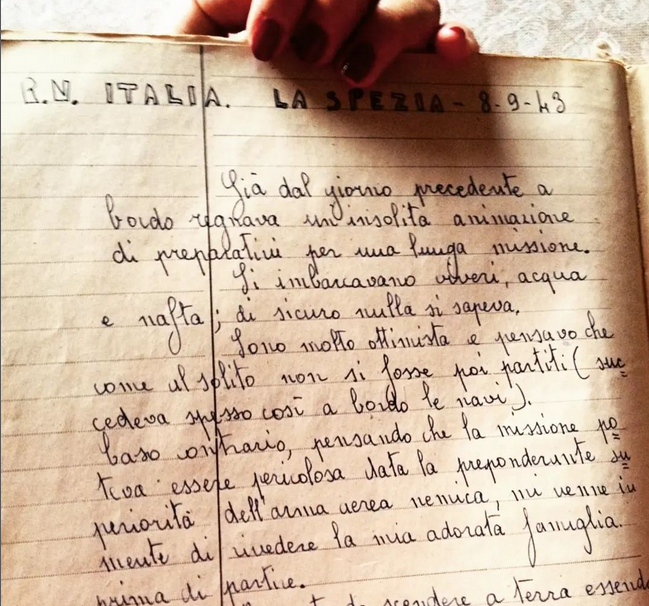 R.N. ITALIA. LA SPEZIA - 8-9-43
Già dal giorno precedente a
bordo regnava un'insolita animazione
di preparativi per una lunga missione.
Si imbarcavano viveri, acqua
e nafta; di sicuro nulla si sapeva.
Sono molto ottimista e pensavo che
come al solito non si fosse poi partiti (suc=
cedeva spesso così a bordo le navi).
Caso contrario, pensando che la missione po=
teva essere pericolosa data la preponderante su=
periorità dell'arma aerea nemica, mi venne in
mente di rivedere la mia adorata famiglia.
prima di partire.
scendere a terra essendo